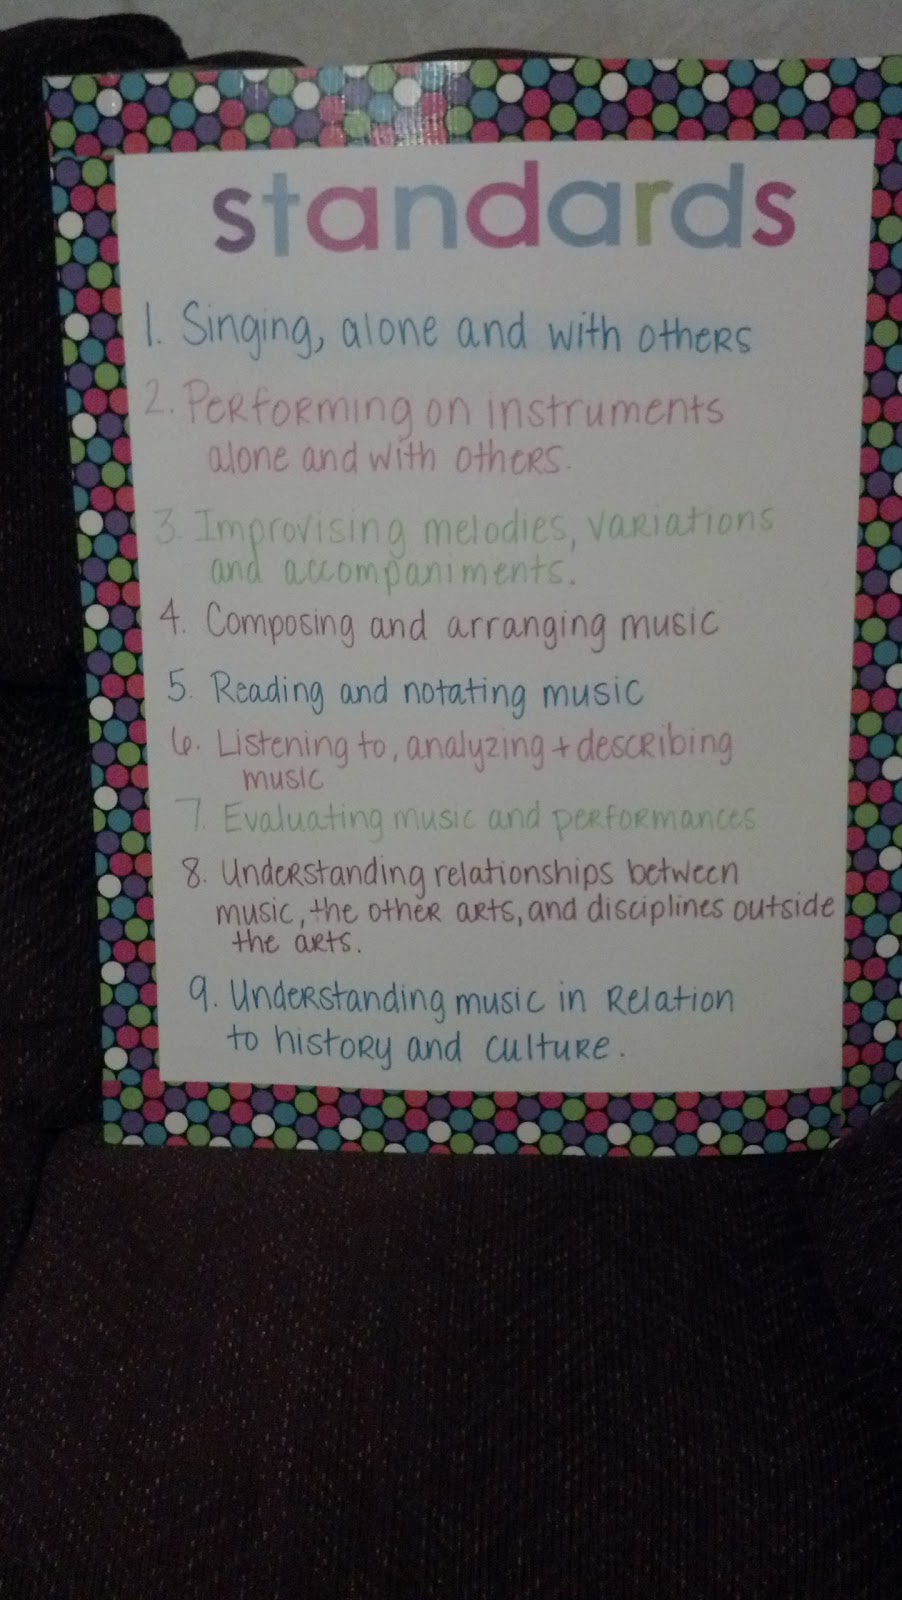 standards
1. Singing, alone and with others
2. Performing on instruments
alone and with others.
3. Improvising melodies, variations
and accompaniments.
4. Composing and arranging music
5. Reading and notating music
6. Listening to, analyzing + describing
music
7. Evaluating music and performances
8. Understanding relationships between
music, the other arts, and disciplines outside
the arts.
9. Understanding music in relation
to history and culture.